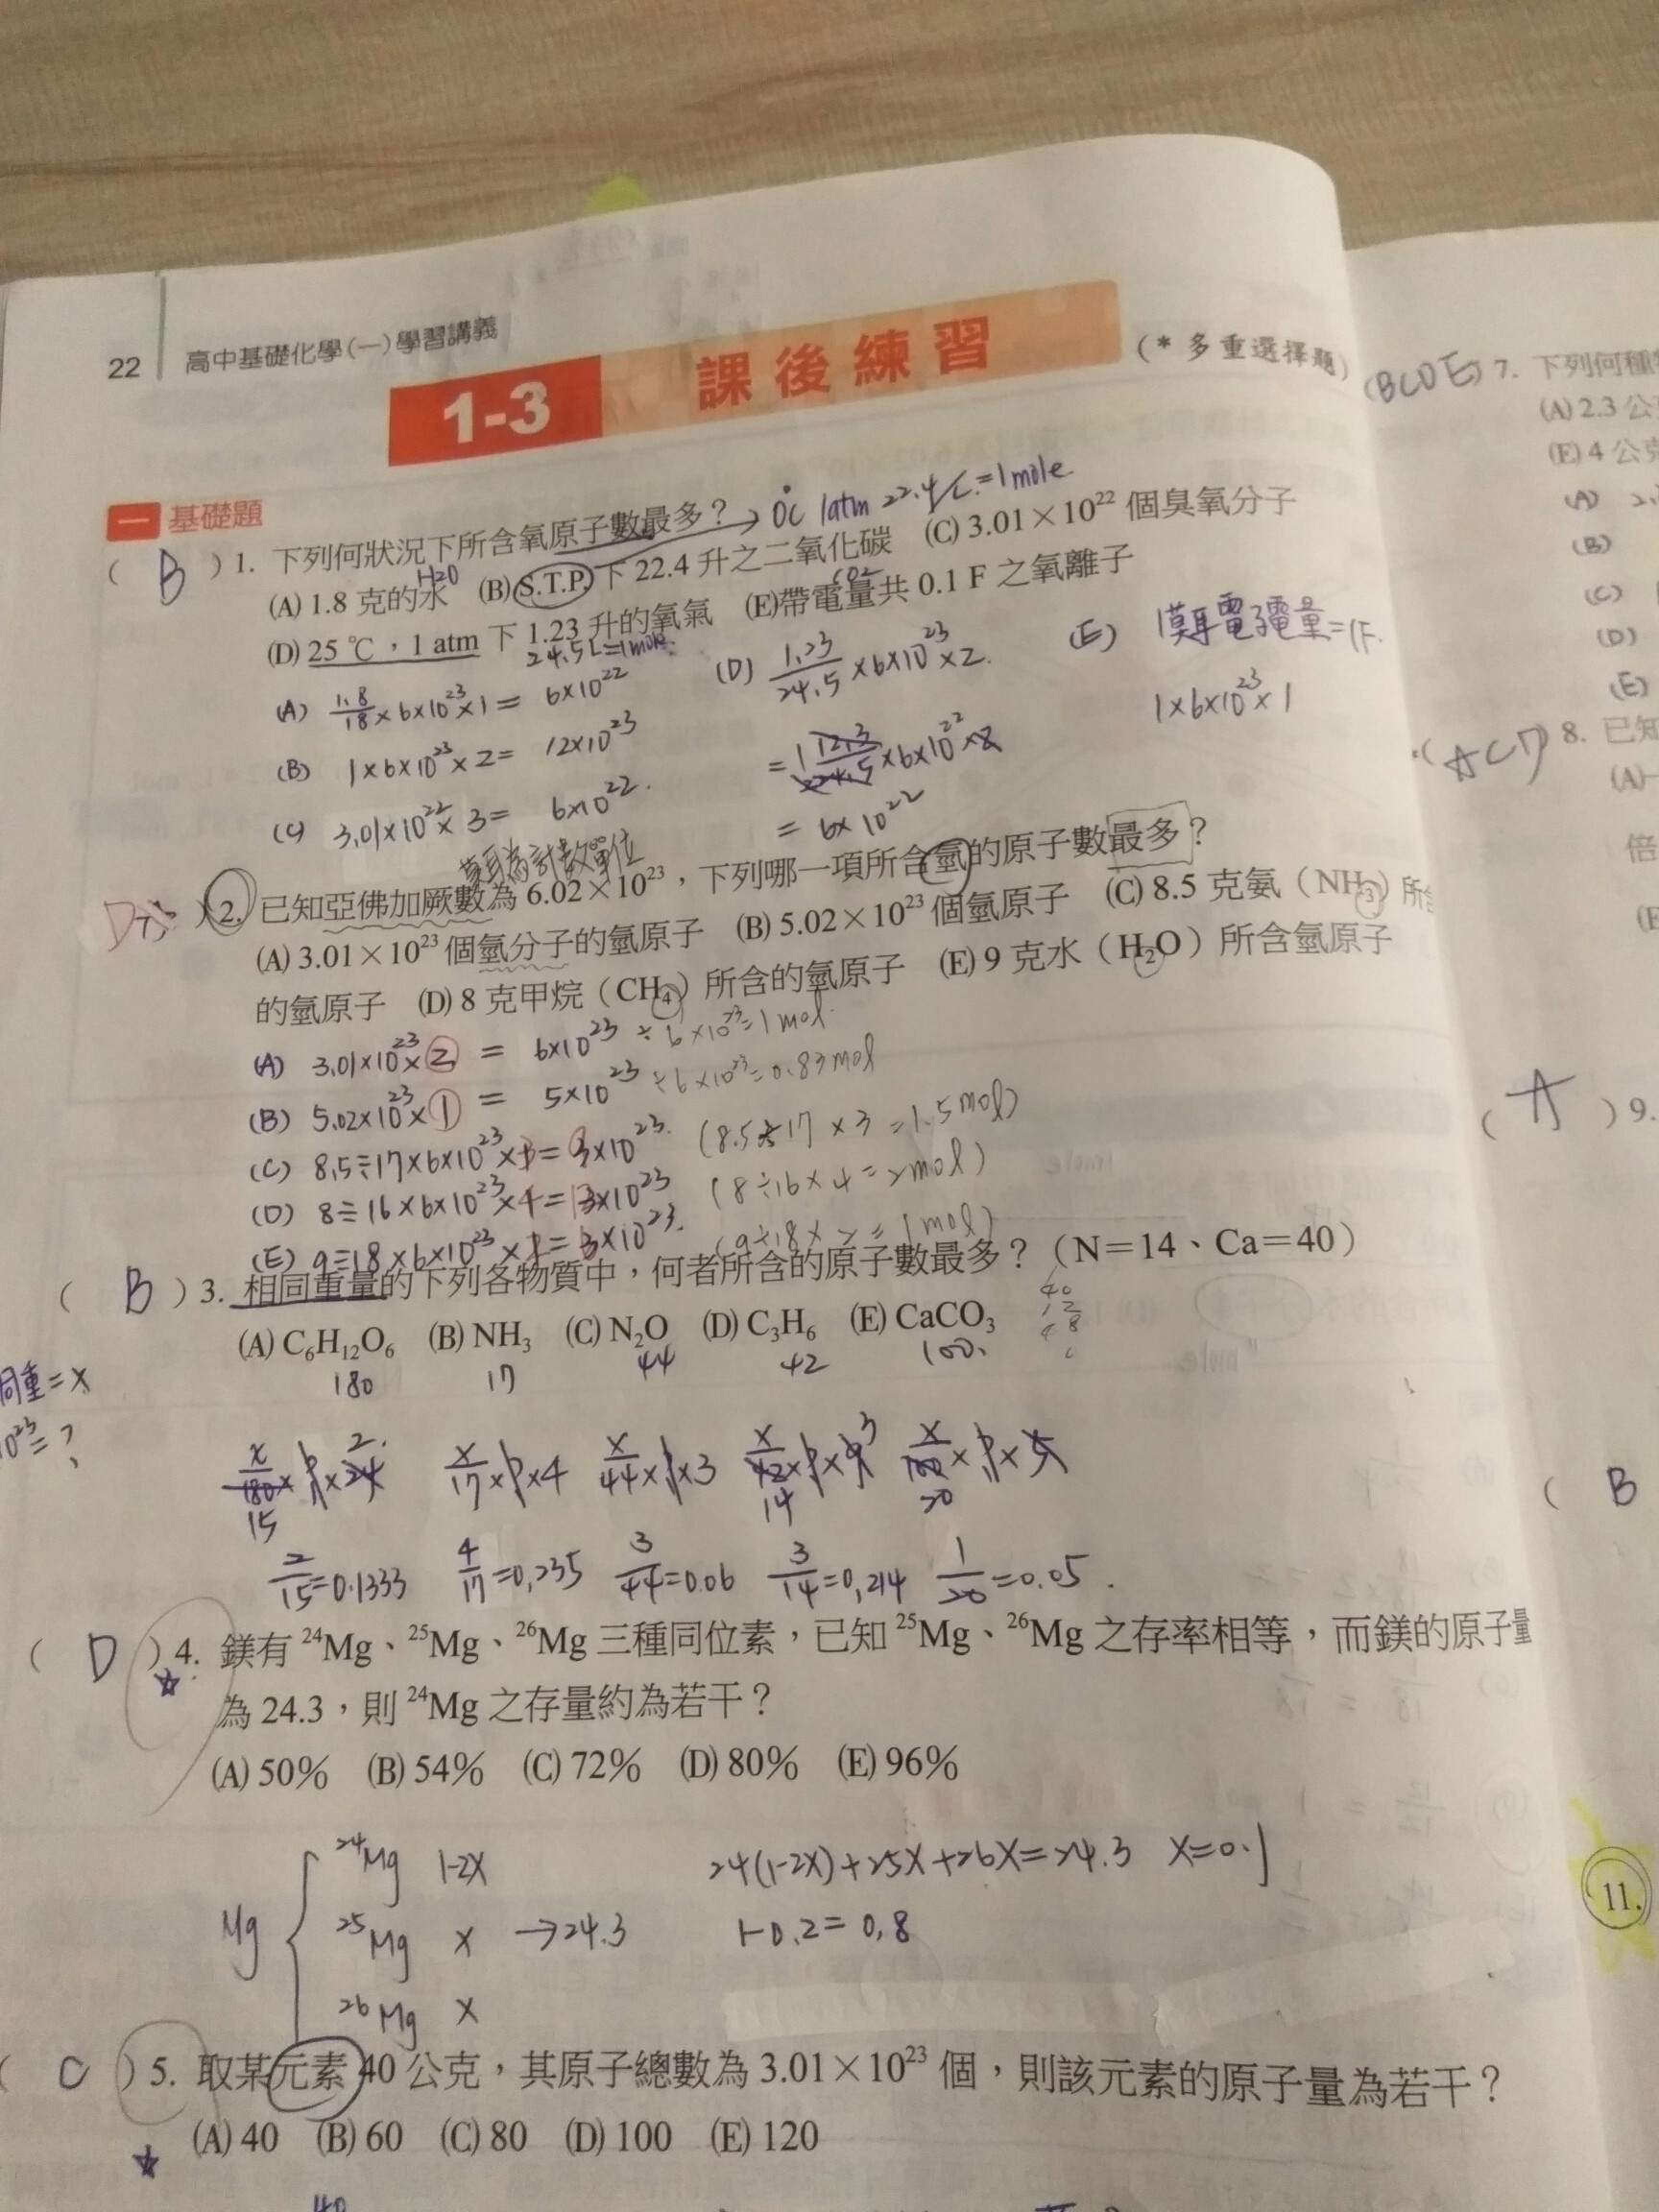 22 高中基礎化學(一)學習講義
1-3 課後練習 (* 多重選擇題)
一 基礎題
( B ) 1. 下列何狀況下所含氧原子數最多？ → 0°C 1atm 22.4L=1mole
(A) 1.8 克的水 (B) S.T.P. 下 22.4 升之二氧化碳 (C) 3.01×10²² 個臭氧分子
H2O CO2
(D) 25 ℃，1 atm 下 1.23 升的氧氣 (E)帶電量共 0.1 F 之氧離子
24.5L=1mole.
(A) 1.8/18 ×6×10²³×1= 6×10²²
(B) 1×6×10²³×2= 12×10²³
(C) 3.01×10²²×3= 6×10²².
(D) 1.23/24.5 ×6×10²³×2.
= 12.3/24.5 ×6×10²²×2
= 6×10²²
(E) 1莫耳電子電量=1F.
1×6×10²³×1
莫耳為計數單位
2. 已知亞佛加厥數為 6.02×10²³，下列哪一項所含氫的原子數最多？
(A) 3.01×10²³ 個氫分子的氫原子 (B) 5.02×10²³ 個氫原子 (C) 8.5 克氨（NH₃）所含
的氫原子 (D) 8 克甲烷（CH₄）所含的氫原子 (E) 9 克水（H₂O）所含氫原子
(A) 3.01×10²³×2 = 6×10²³ ÷6×10²³=1mol.
(B) 5.02×10²³×1 = 5×10²³ ÷6×10²³=0.83mol
(C) 8.5÷17×6×10²³×3= ×10²³. (8.5÷17×3=1.5mol)
(D) 8÷16×6×10²³×4= ×10²³ (8÷16×4=2mol)
(E) 9÷18×6×10²³× = ×10²³. (9÷18×2=1mol)
( B ) 3. 相同重量的下列各物質中，何者所含的原子數最多？（N＝14、Ca＝40）
(A) C₆H₁₂O₆ (B) NH₃ (C) N₂O (D) C₃H₆ (E) CaCO₃
180 17 44 42 100.
40
12
48
同重=x
10²³=?
x/17 × ×4 x/44 × ×3
15 14 20
2/15=0.1333 4/17=0.235 3/44=0.06 3/14=0.214 1/20=0.05.
( D ) 4. 鎂有 ²⁴Mg、²⁵Mg、²⁶Mg 三種同位素，已知 ²⁵Mg、²⁶Mg 之存率相等，而鎂的原子量
為 24.3，則 ²⁴Mg 之存量約為若干？
(A) 50% (B) 54% (C) 72% (D) 80% (E) 96%
²⁴Mg 1-2X 24(1-2X)+25X+26X=24.3 X=0.1
Mg ²⁵Mg X →24.3 1-0.2=0.8
²⁶Mg X
( C ) 5. 取某元素 40 公克，其原子總數為 3.01×10²³ 個，則該元素的原子量為若干？
(A) 40 (B) 60 (C) 80 (D) 100 (E) 120
40
(BCDE) 7. 下列何種
(A) 2.3 公
(E) 4 公克
(A) 2.
(B)
(C)
(D)
(E)
8. 已知
(A)一
倍
(E
( A ) 9.
( B
11.